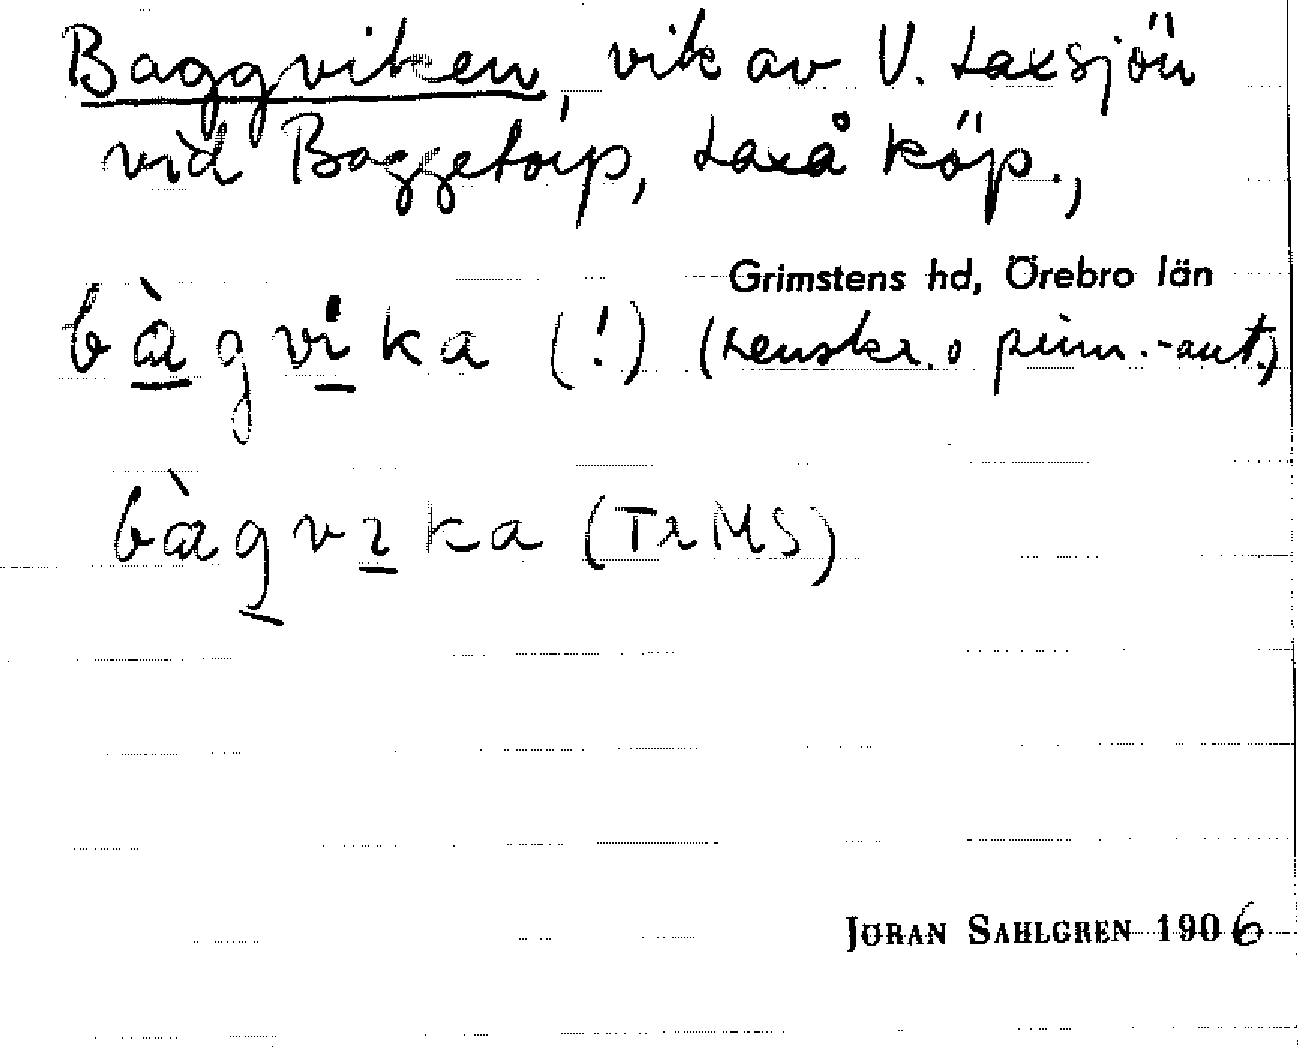 Baggviken, vik av V. Laxsjön
vid Baggetorp, Laxå köp.,
Grimstens hd, Örebro län
bàgvika (!) (renskr. o prim.-ant.)
bàgvika (TrMS)
JÖRAN SAHLGREN 1906